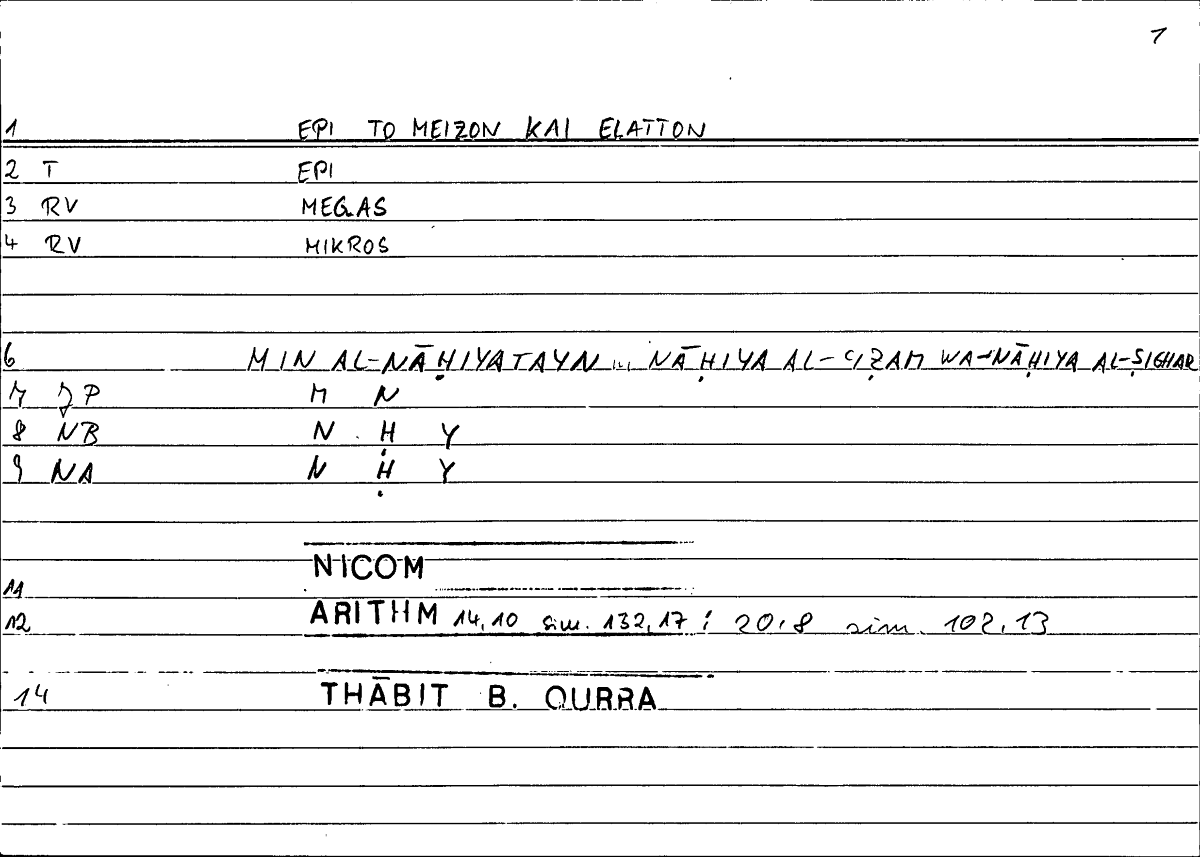 1
1 EPI TO MEIZON KAI ELATTON
2 T EPI
3 RV MEGAS
4 RV MIKROS
6 MIN AL-NĀḤIYATAYN ... NĀḤIYA AL-ʿIẒAM WA-NĀḤIYA AL-ṢIGHAR
7 JP M N
8 NB N Ḥ Y
9 NA N Ḥ Y
NICOM
11
12 ARITHM 14,10 sim. 132,17 ; 20,8 sim. 102,13
14 THĀBIT B. QURRA